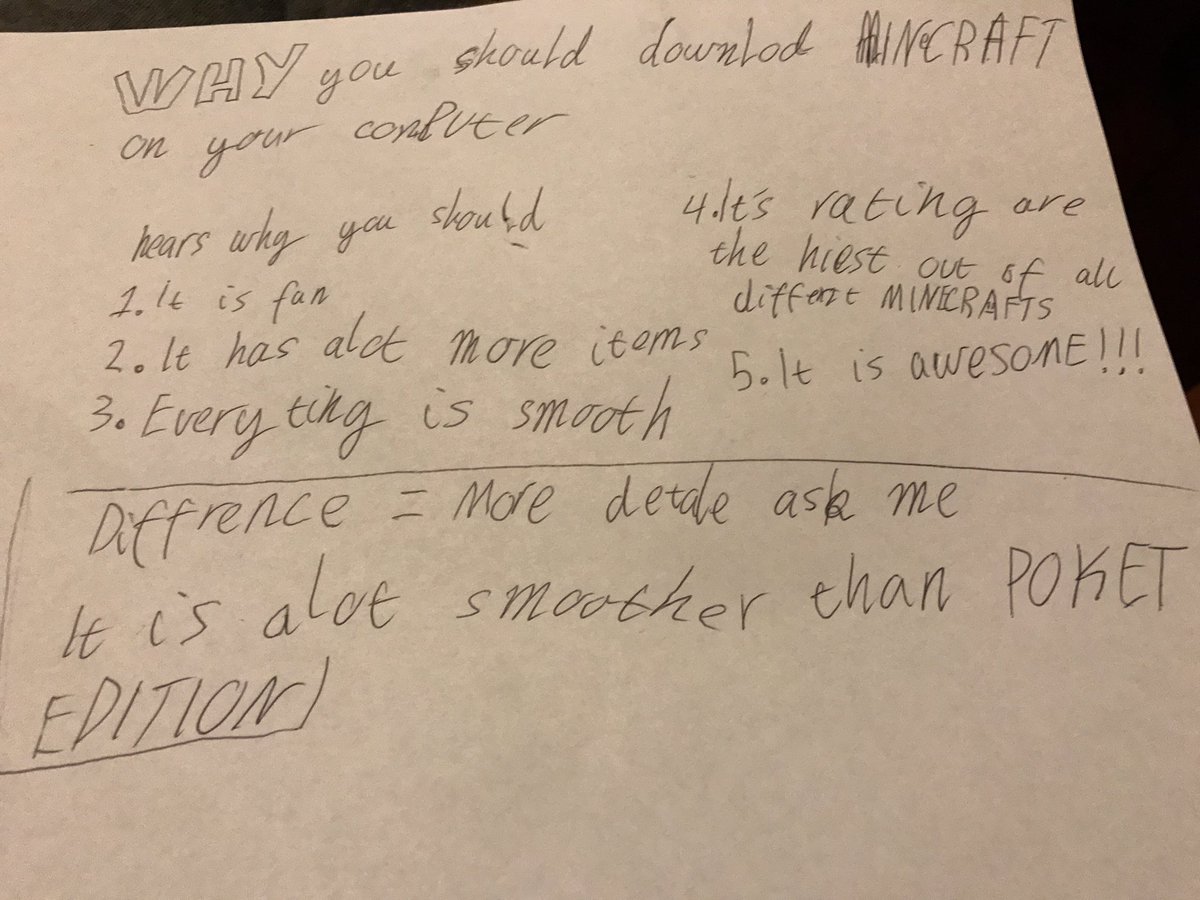 WHY you should downlod MINECRAFT
on your conPUter
hears why you should
1. It is fun
2. It has alot more items
3. Every ting is smooth
4. It's rating are
the hiest out of all
differnt MINECRAFTS
5. It is awesomE!!!
Diffrence = More detale ask me
It is alot smoother than POKET
EDITION